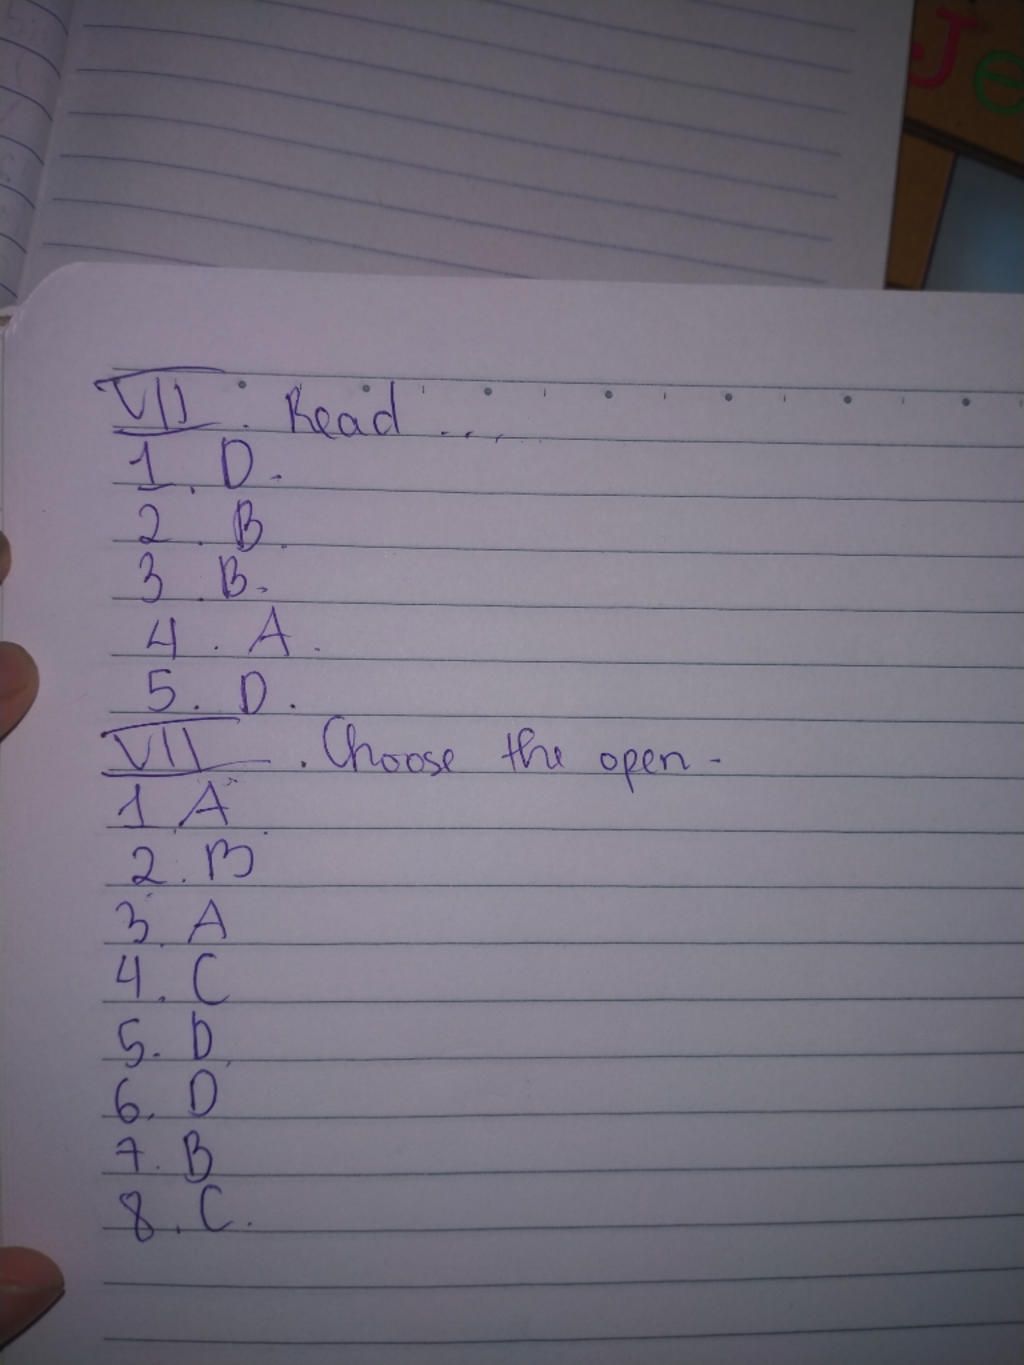 Je
VII. Read ....
1. D.
2. B.
3. B.
4. A.
5. D.
VII. Choose the open -
1. A
2. B
3. A
4. C
5. D
6. D
7. B
8. C.